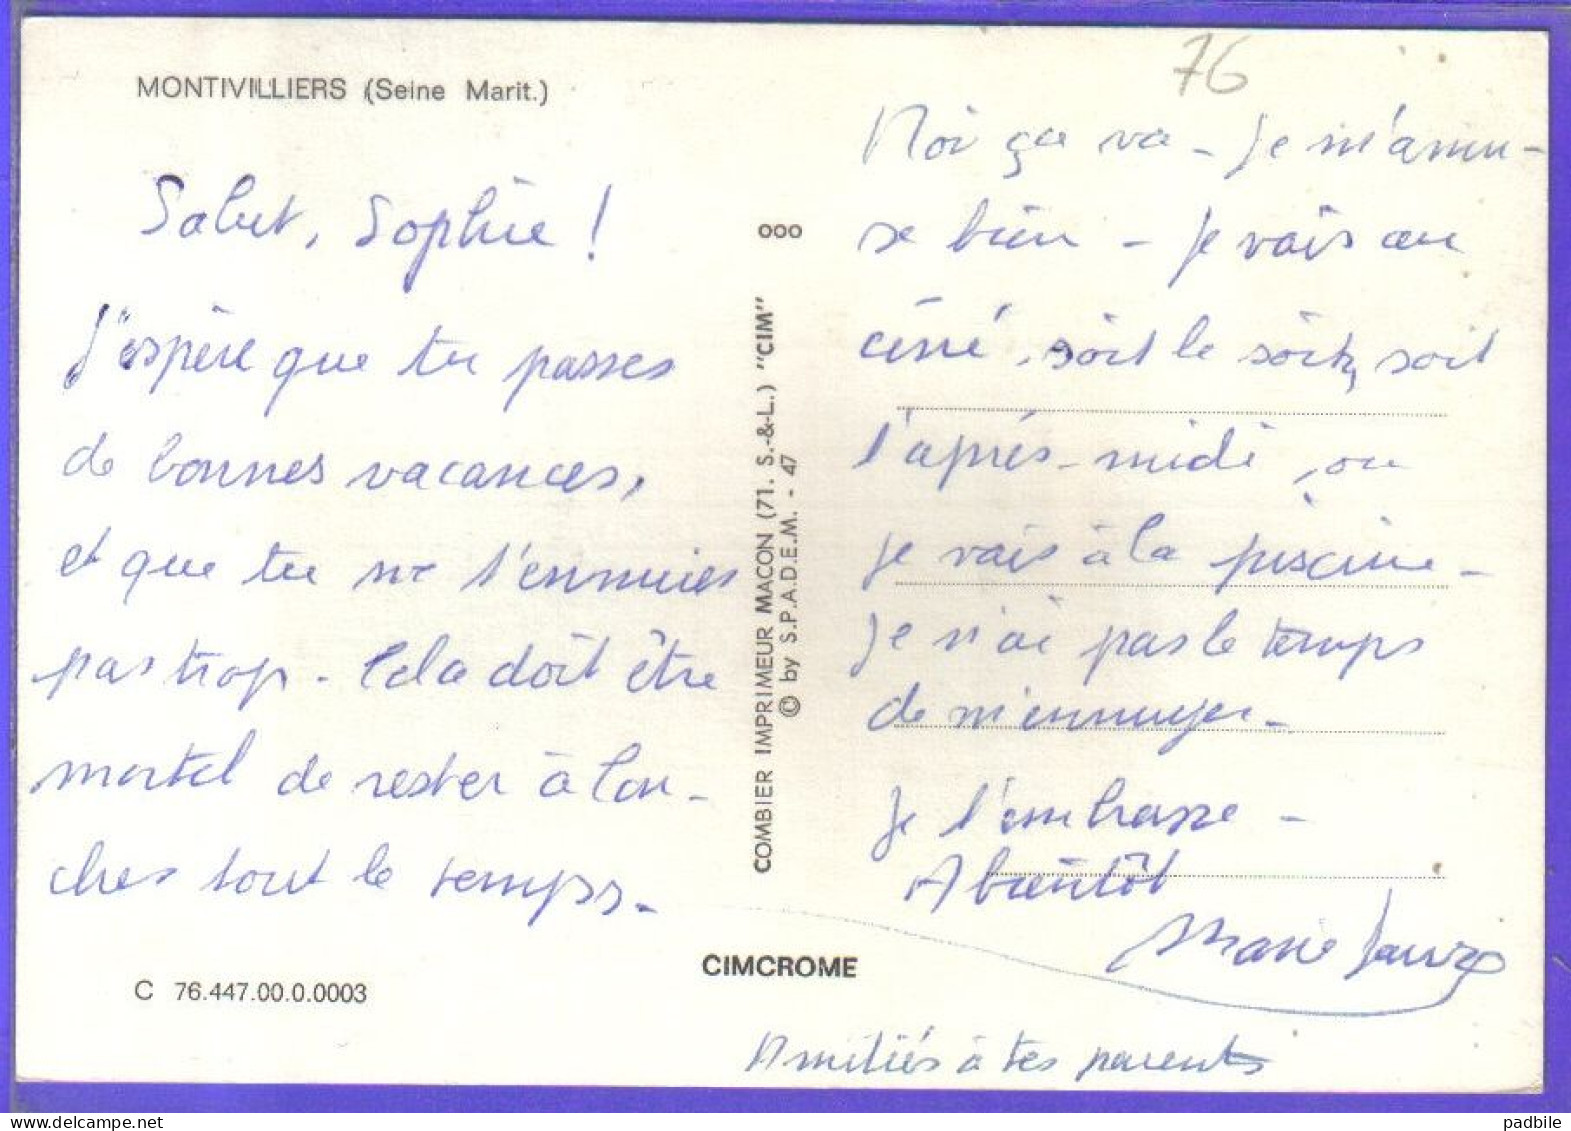 MONTIVILLIERS (Seine Marit.)
Salut, Sophie !
J'espère que tu passes
de bonnes vacances,
et que tu ne t'ennuies
pas trop. Cela doit être
mortel de rester à
ches tout le temps.
C 76.447.00.0.0003
COMBIER IMPRIMEUR MACON (71. S.-&-L.) "CIM"
© by S.P.A.D.E.M. - 47
CIMCROME
76
Moi ça va - Je m'amu-
se bien - Je vais au
ciné, soit le soir, soit
l'après-midi, ou
je vais à la piscine -
Je n'ai pas le temps
de m'ennuyer -
Je t'embrasse -
A bientôt
Marie
Amitiés à tes parents
padbile